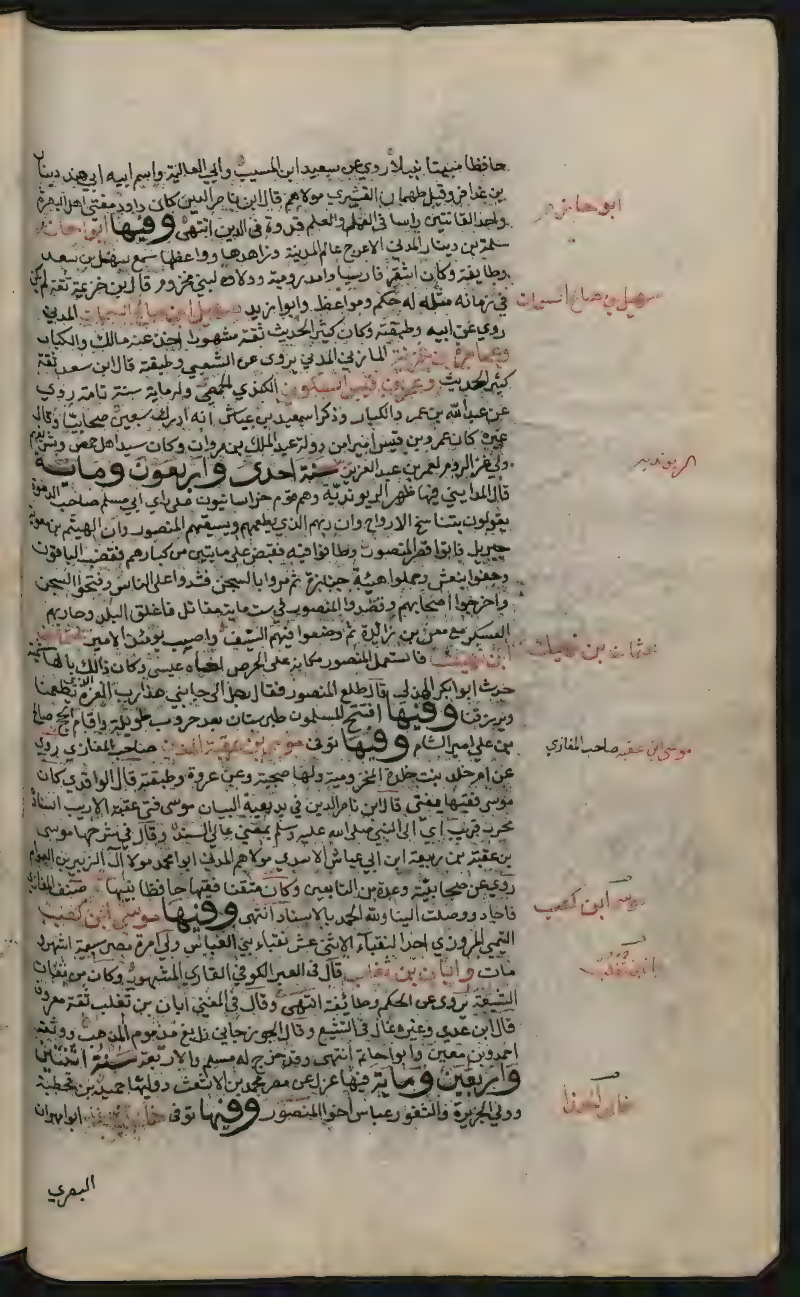 حافظا مفتيا نبيلا روي عن سعيد ابن المسيب وابي العالية واسم ابيه ابي هند دينار
بن عذافر وقيل طهمان القشيري مولاهم قال ابن ناصر الدين كان داود مفتي اهل البصرة
واحد القانتين راسا في العلم والعلم قدوة في الدين انتهى وفيها ابو حازم
سلمة بن دينار المدني الاعرج عالم المدينة وزاهدها وواعظها سمع سهل بن سعد
وطايفة وكان اشقر فارسيا وامه رومية وولاه لبني مخزوم قال ابن خزيمة ثقة لم يكن
في زمانه مثله له حكم ومواعظ وابو يزيد سهيل ابن ابي صالح السمان المدني
روي عن ابيه وطبقته وكان كثير الحديث ثقة مشهورا اخذ عنه مالك والكبار
وعمارة بن غزية المازني المدني يروي عن الشعبي وطبقته قال ابن سعد ثقة
كثير الحديث وعمرو بن قيس السكوني الكندي الحمصي وله ماية سنة تامة روي
عن عبدالله بن عمر والكبار وذكر اسمعيل بن عياش انه ادرك سبعين صحابيا وقال
غيره كان عمرو بن قيس امير ابن دولة عبد الملك بن مروان وكان سيد اهل حمص وشريفهم
ولي غزو الروم لعمر بن عبد العزيز سنة احدى واربعون ومائة
قال المدايني فيها ظهر الريوندية وهم قوم خراسانيون على راي ابي مسلم صاحب الدعوة
يقولون بتناسخ الارواح وان ربهم الذي يطعمهم ويسقيهم المنصور وان الهيثم بن معوية
جبريل فاتوا قصر المنصور وطافوا فيه فقبض على مايتين من كبارهم فغضب الباقون
وحفوا بنعش وحملوا هيئة جنازة ثم مروا بالسجن فشدوا على الناس وفتحوا السجن
واخرجوا اصحابهم وقصدوا المنصور في ست ماية مقاتل فاغلق البلد وحاربهم
العسكر مع معن بن زائدة ثم وضعوا فيهم السيف واصيب يومئذ الامير عثمان
ابن نهيك فاستعمل المنصور مكانه على الحرس اخاه عيسى وكان ذالك بالهاشمية
حدث ابو بكر الهذلي قال طلع المنصور فقال رجل الى جانبي هذا رب العزة الذي يطعمنا
ويرزقنا وفيها افتتح المسلمون طبرستان بعد حروب طويلة واقام الحج صالح
بن علي امير الشام وفيها توفى موسى بن عقبة المدني صاحب المغازي روي
عن ام خالد بنت خالد المخزومية ولها صحبة وعن عروة وطبقته قال الواقدي كان
موسى فقيها يفتي قال ابن ناصر الدين في بديعية البيان موسى فتى عقبة الاريب اسناده
محرب قريب اي الى النبي صلى الله عليه وسلم يعني عالي السند وقال في شرحها موسى
بن عقبة بن ربيعة ابن ابي عياش الاسدي مولاهم المدني ابو محمد مولا آل الزبير بن العوام
روي عن صحابية وعدة من التابعين وكان متقنا فقيها حافظا نبيها صنف المغازي
فاجاد ووصلت الينا ولله الحمد بالاسناد انتهى وفيها موسى ابن كعب
التميمي المروزي احد النقباء الاثني عشر نقباء بني العباس ولي امرة مصر سبعة اشهر و
مات وابان بن تغلب قال في العبر الكوفي القاري المشهور وكان من ثقات
الشيعة يروي عن الحكم وطايفة انتهى وقال في المغني ابان بن تغلب ثقة معروف
قال ابن عدي وغيره غال في التشيع وقال الجوزجاني زايغ مذموم المذهب ووثقه
احمد وبن معين وابو حاتم انتهى وقد خرج له مسلم والاربعة سنة اثنتين
واربعين وماية فيها عزل عن مصر محمد بن الاشعث ووليها حميد بن قحطبة
وولي الجزيرة والثغور عباس اخو المنصور وفيها توفى خالد الحذا ابو المهران
البصري
ابو حازم
سهيل بن صالح السمان
الريوندية
عثمان بن نهيك
موسى ابن عقبه صاحب المغازي
موسى ابن كعب
ابان تغلب
خالد الحذا